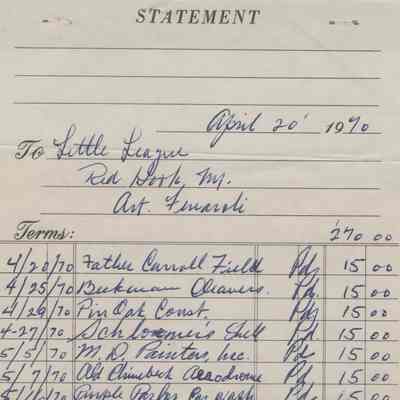 STATEMENT
April 20 1970
To Little League
Red Hook, N.Y.
Art. Ferraroli
Terms: 270 00
4/20/70 Father Carroll Field Pd. 15 00
4/25/70 Beekman Cleaners. Pd. 15 00
4/29/70 Pin Oak Const. Pd. 15 00
4-27/70 Schloemer's Shell Pd. 15 00
5/5/70 M.D. Painters, Inc. Pd. 15 00
5/7/70 Old Rhinebeck Aerodrome Pd. 15 00
70 Purple Parlor Car Wash Pd. 15 00